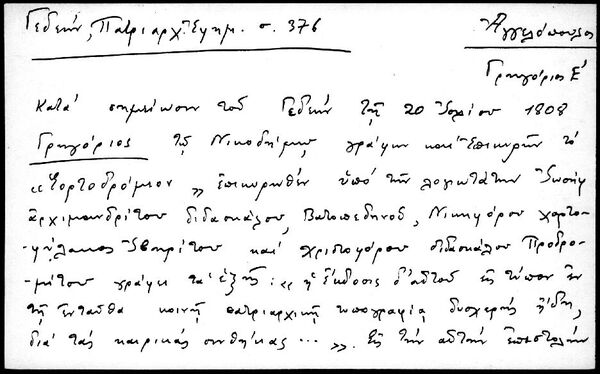 Γεδεών, Πατριαρχ. Ἐφημ. σ. 376
Ἀγγελόπουλος
Γρηγόριος Ε΄
Κατά σημείωσιν τοῦ Γεδεών τῇ 20 Ἰουλίου 1808
Γρηγόριος τῷ Νικοδήμῳ γράφων καί ἐπικυρῶν τό
«Ἑορτοδρόμιον» ἐπικυρωθέν ὑπό τῶν λογιωτάτων Ἰωσήφ
ἀρχιμανδρίτου διδασκάλου, Βατοπεδηνοῦ, Νικηφόρου χαρτο-
φύλακος Ἰβηρίτου καί Χριστοφόρου διδασκάλου Προδρο-
μίτου γράφει τά ἑξῆς: «ἡ ἔκδοσις δ' αὐτοῦ εἰς τύπον ἐν
τῇ ἐνταῦθα κοινῇ πατριαρχικῇ τυπογραφίᾳ δυσχερής ἤδη,
διά τάς καιρικάς συνθήκας ...». Εἰς τήν αὐτήν ἐπιστολήν